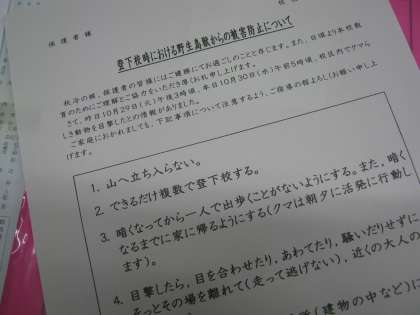 保護者様
登下校時における野生鳥獣からの被害防止について
秋冷の候、保護者の皆様にはご健勝にてお過ごしのことと存じます。また、日頃より本校教
育のためにご理解とご協力をいただき厚くお礼申し上げます。
さて、昨日10月29日(火)午後3時頃、本日10月30日(水)午前5時頃、校区内でクマら
しき動物を目撃したとの情報がありました。
ご家庭におかれましても、下記事項について注意するよう、ご指導の程よろしくお願い申し上
げます。
1. 山へ立ち入らない。
2. できるだけ複数で登下校する。
3. 暗くなってから一人で出歩くことがないようにする。また、暗く
なるまでに家に帰るようにする(クマは朝夕に活発に行動し
ます)。
4. 目撃したら、目を合わせたり、あわてたり、騒いだりせずに
そっとその場を離れて(走って逃げない)、近くの大人の
(建物の中など)に